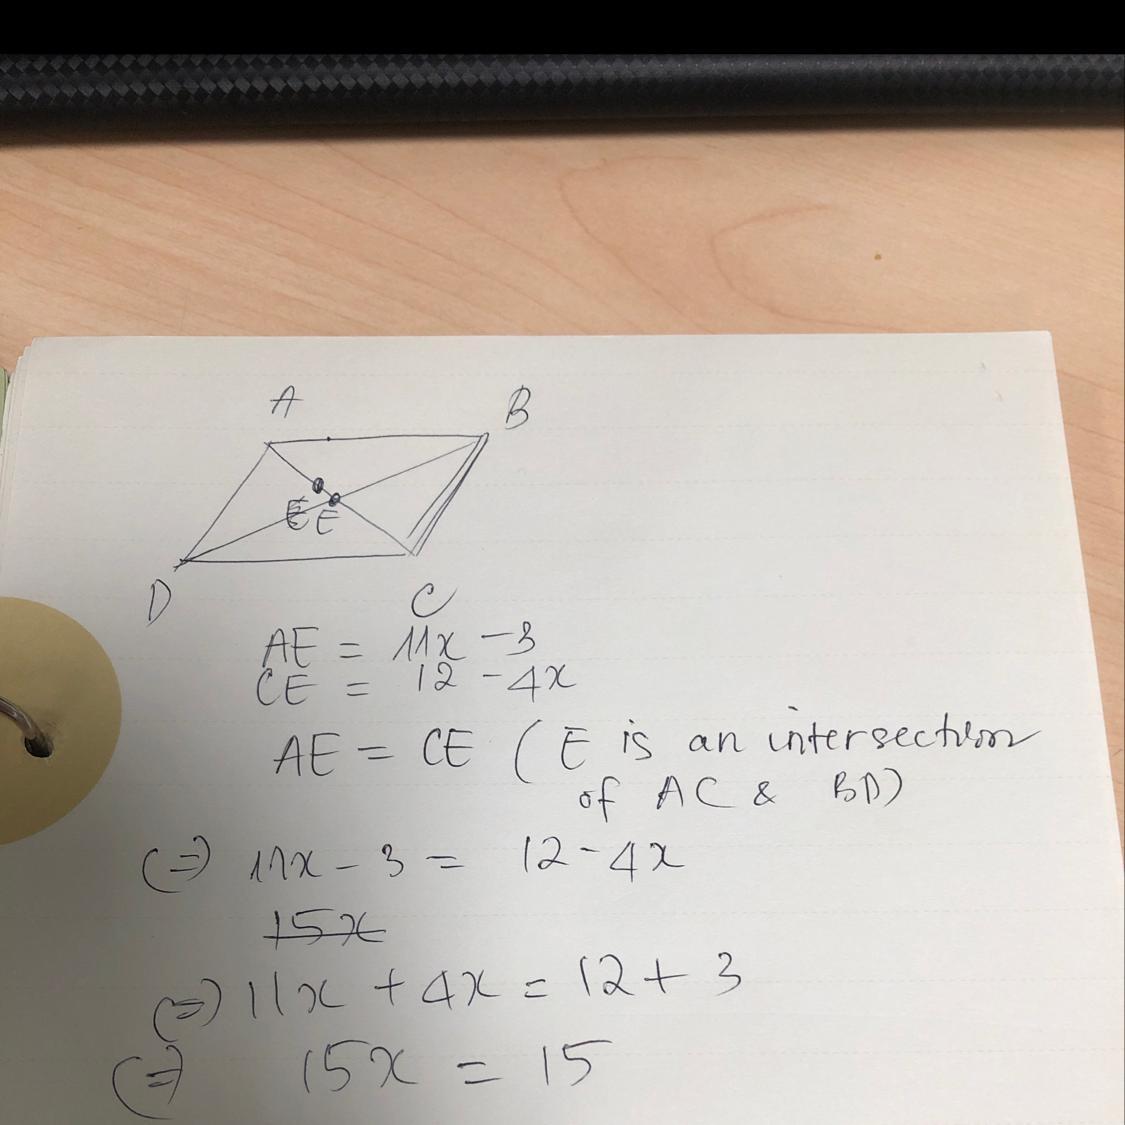 A
B
E E
D
C
AE = 11x - 3
CE = 12 - 4x
AE = CE ( E is an intersection
of AC & BD)
(=) 11x - 3 = 12 - 4x
15x
(=) 11x + 4x = 12 + 3
(=) 15x = 15